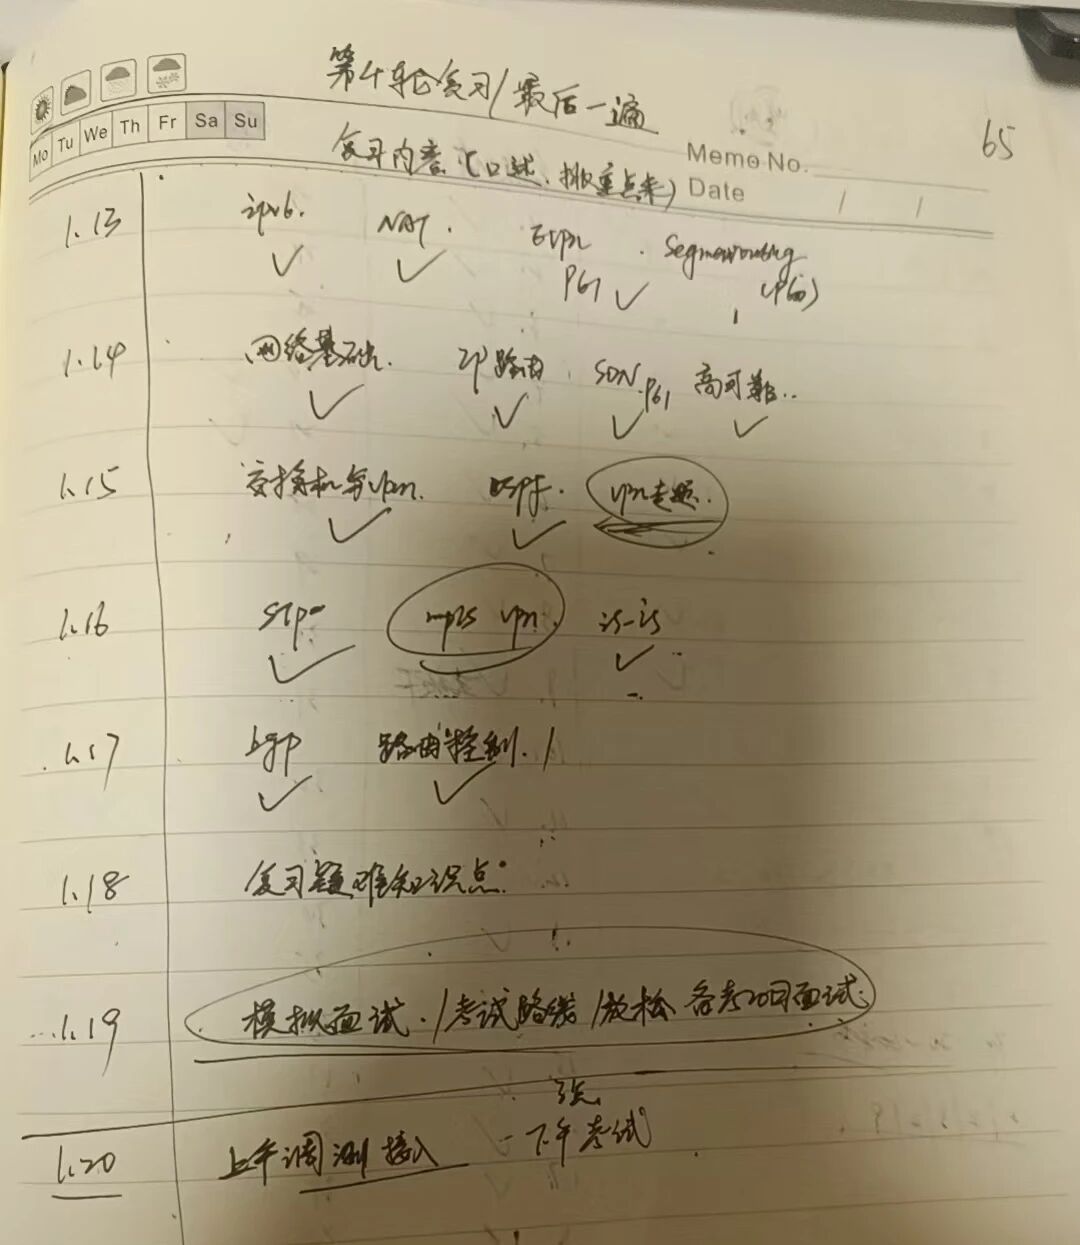 第4轮复习/最后一遍
65
Mo Tu We Th Fr Sa Su
Memo No.
复习内容(口述、挑重点来)
Date / /
1.13 ipv6. NAT. Evpn. Segment routing
P61 (P60)
1.14 网络基础. IP路由. SDN. P61 高可靠..
1.15 交换机与vlan. ospf. vpn专题.
1.16 STP mpls vpn. is-is
1.17 bgp 路由控制. /
1.18 复习疑难知识点.
1.19 模拟面试. /考试路线 /放松 备考20日面试.
1.20 上午调测接入 - 下午考试